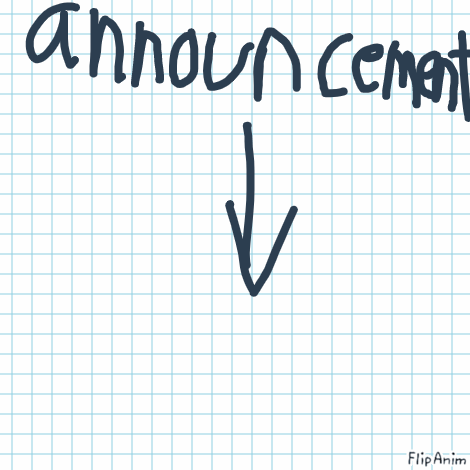 announcement
FlipAnim